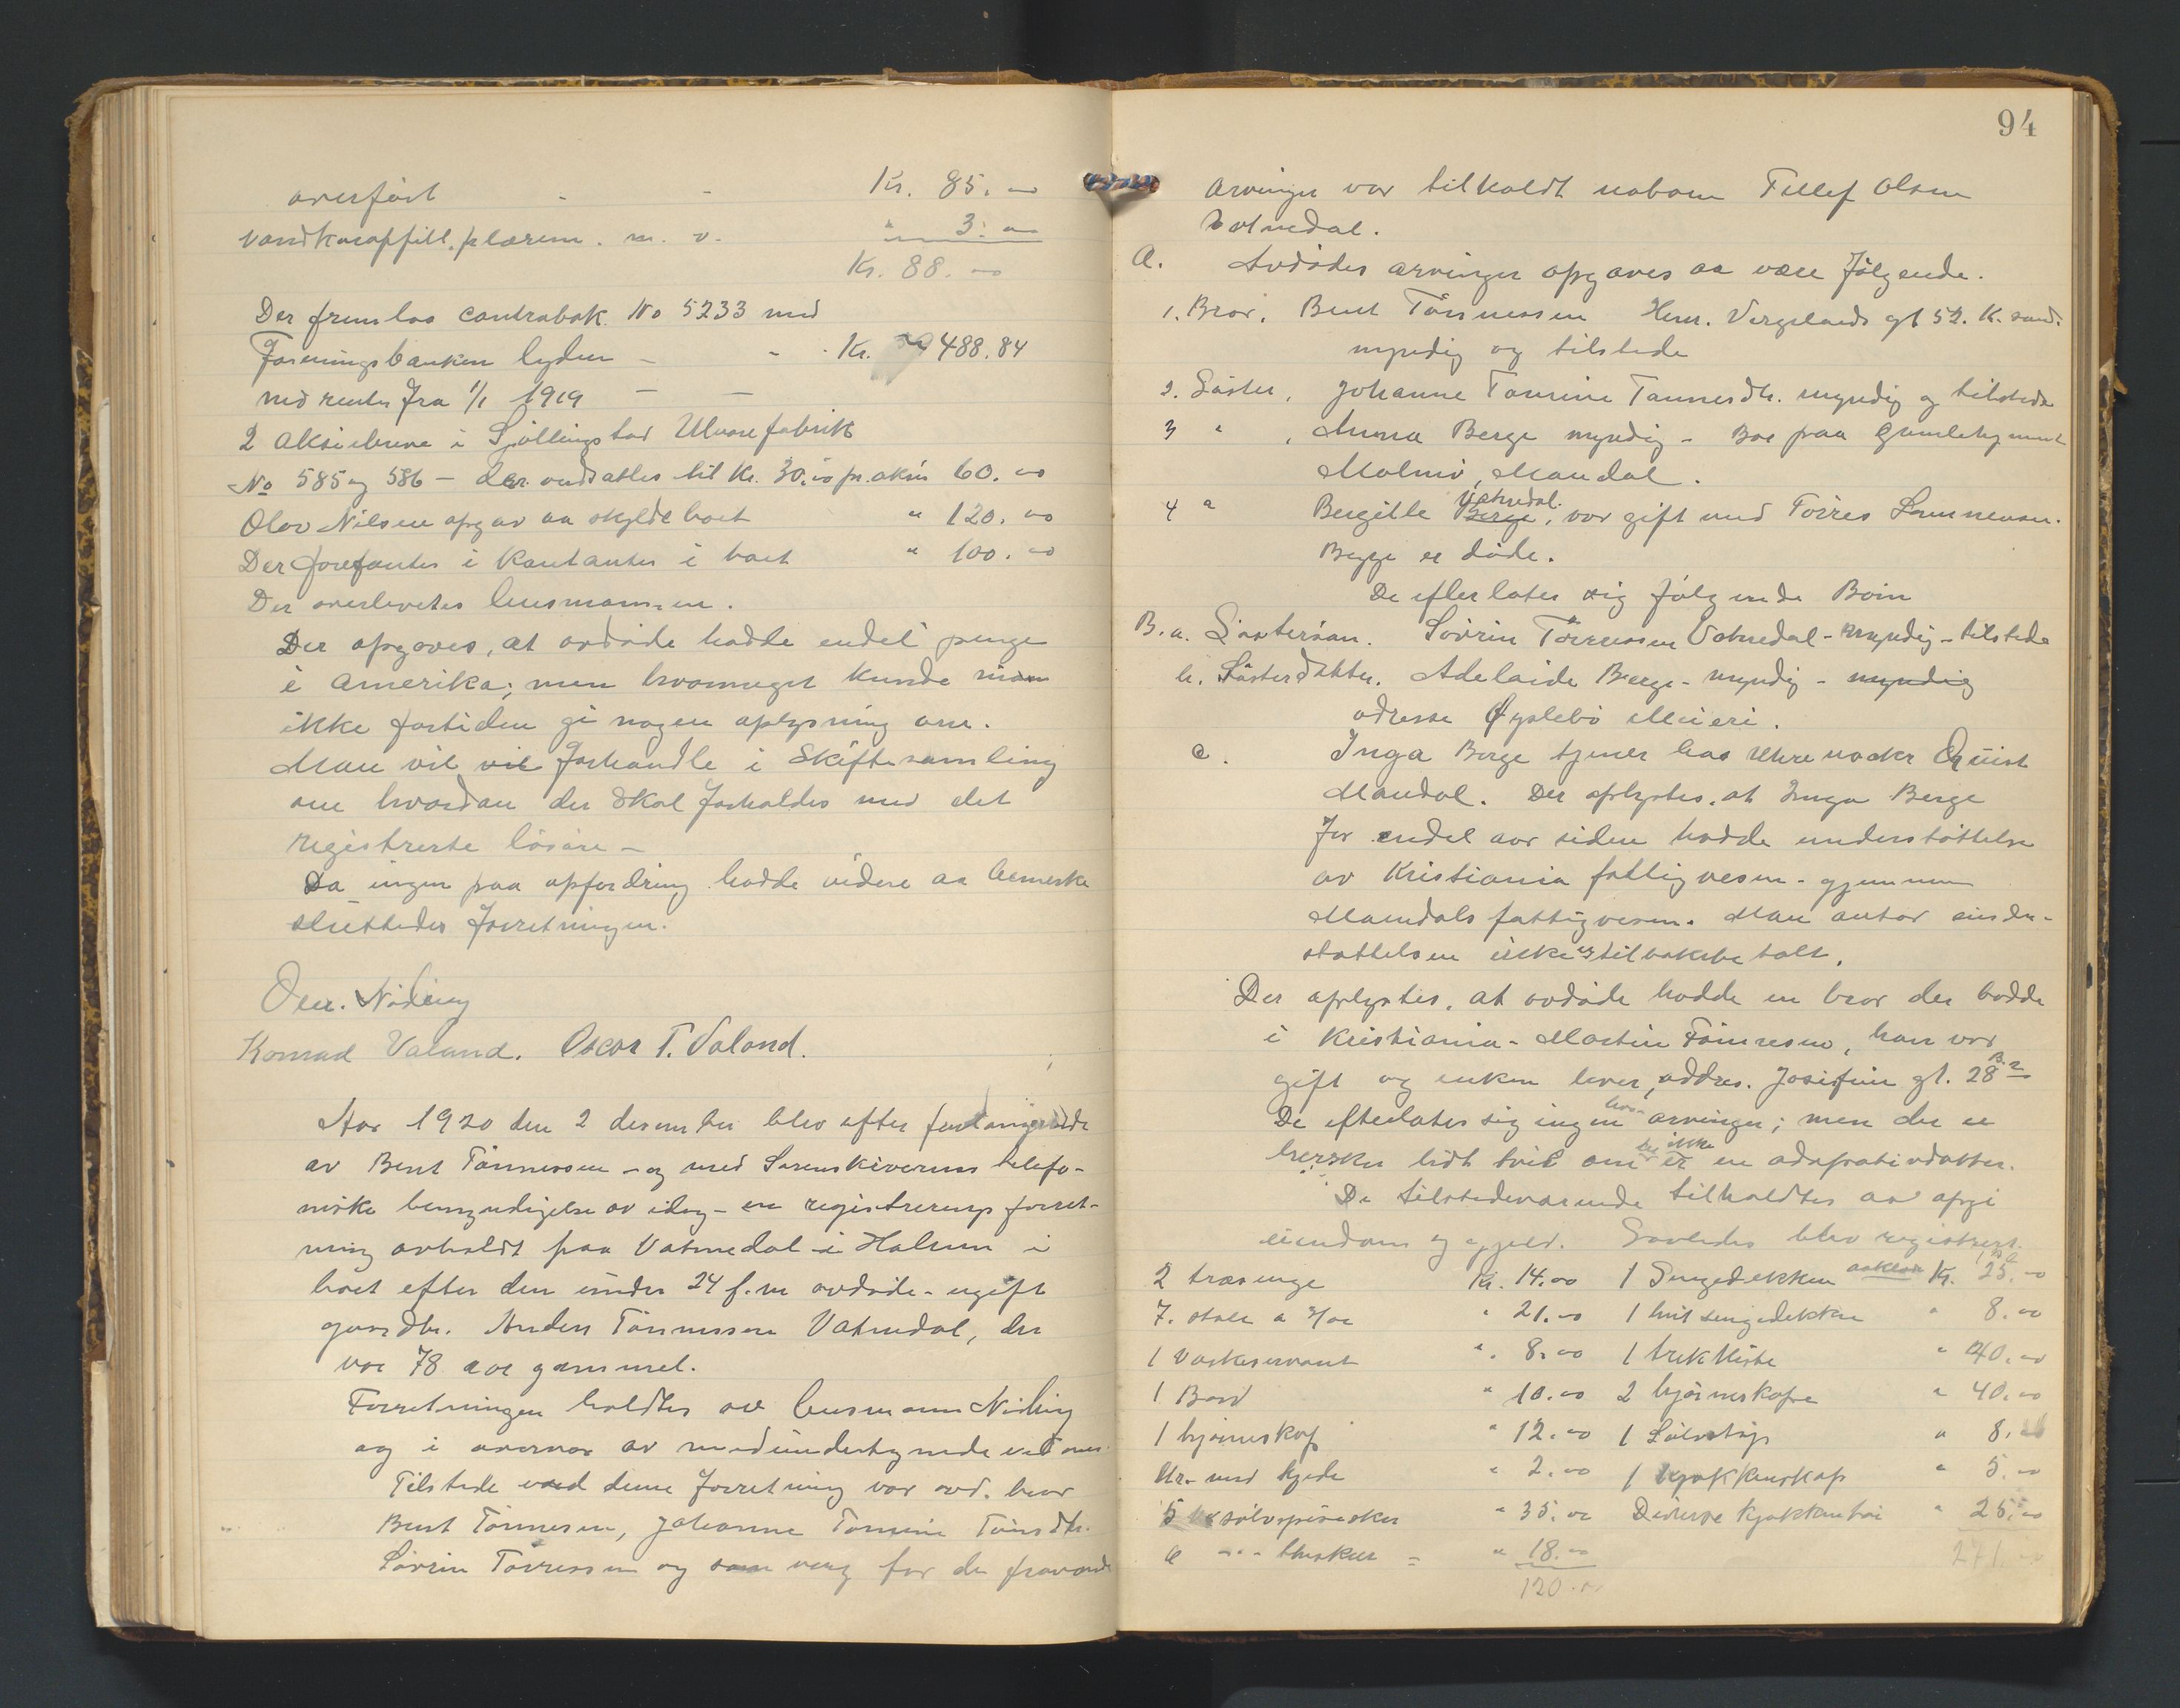 overført - - Kr. 85.00
" 3.00
Kr. 88.00
Der fremlas contrabok No 5233 med
Foreningsbanken lyden - - Kr. 488.84
med renter fra 1/1 1919 - -
2 aksiebreve i Sjølingstad Uldvarefabrik
No 585 og 586 - der ansattes til Kr. 30.00 pr. aksie 60.00
Olav Nilsen opgav aa skylde boet " 120.00
Der forefantes i kontanter i boet " 100.00
Der overlevertes lensmannen.
Der opgaves, at avdøde hadde endel penge
i Amerika; men hvormeget kunde man
ikke fortiden gi nogen oplysning om.
Man vil vil forhandle i Skiftesamling
om hvordan der skal forholdes med det
registrerte løsøre -
Da ingen paa opfordring hadde videre aa bemerke
sluttedes forretningen.
Nøding
Konrad Valand. Oscar T. Valand.
Aar 1920 den 2 desember blev efter forlangende
av Bent Tønnessen - og med Sorenskriverens telefo-
niske bemyndigelse av idag - en registrerings forret-
ning avholdt paa Vatnedal i Halsum i
boet efter den under 24 f.m avdøde - ugift
gaardbr. Anders Tønnessen Vatnedal, der
var 78 aar gammel.
Forretningen holdtes av lensmann Nøding
og i overvær av medundertegnede vidner.
Tilstede ved denne forretning var avd. bror
Bent Tønnessen, Johanne Tomine Tønsdtr.
Sørin Tørressen og som verg for de fraværende
94
arvinger var tilkaldt naboen Tellef Olsen
Vatnedal.
A. Avdødes arvinger opgaves aa være følgende.
1. Bror, Bent Tønnessen Henr. Vergelands gt 52. K. sand.
myndig og tilstede
2. Søster, Johanne Tomine Tønnesdtr. myndig og tilstede
3 " , Anna Berge myndig - Bor paa
Malmø, Mandal.
4 " Bergitte Berge Vatnedal, var gift med Tørres
Begge er døde.
De efterlater sig følgende Børn
B. a. Søstersøn. Sørin Tørressen Vatnedal - myndig - tilstede
b. Søsterdatter. Adelaide Berge - myndig - myndig
adresse Øyslebø Meieri.
c. Inga Berge tjener hos Uhremaker Quist
Mandal. Der oplystes, at Inga Berge
for endel aar siden hadde understøttelse
av Kristiania fattigvesen - gjennem
Mandals fattigvesen. Man antar under-
støttelsen ikke er tilbakebetalt.
Der oplystes, at avdøde hadde en bror der bodde
i Kristiania - Martin Tønnesen, han var
gift og enken lever, addres. Josefine gt. 28 B
De efterlater sig ingen livs- arvinger; men der er
hersker lidt tvil om der ikke er en adoptivdatter.
De tilstedeværende tilholdtes aa opgi
eiendom og gjeld. Saaledes blev registrert.
2 træsenge Kr. 14.00 1 Sengedekken aaklæ Kr. 25.00
7. stole a 3/00 " 21.00 1 hvit sengedekken " 8.00
1 Vaskeservant " 8.00 1 trekkiste " 40.00
1 Bord " 10.00 2 hjørneskape " 40.00
1 hjørneskap " 12.00 1 Sølvstøp " 8.00
Ur - med kjede " 2.00 1 kjøkkenskap " 5.00
5 sølvspiseskeer " 35.00 Diverse kjøkkentøi " 25.00
6 - " - theskeer - " 18.00 271.00
120.00